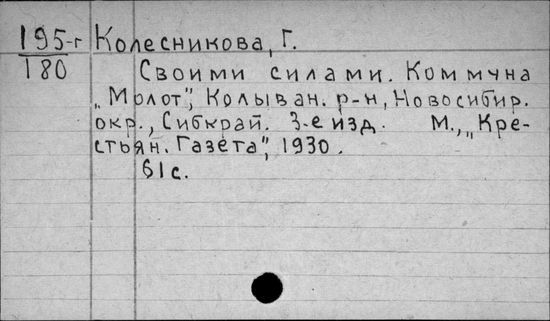 195-г Колесникова, Г.
180 Своими силами. Коммуна
„Молот", Колыван. р-н, Новосибир.
окр., Сибкрай. 3-е изд. М., „Кре-
стьян. Газета", 1930.
61с.